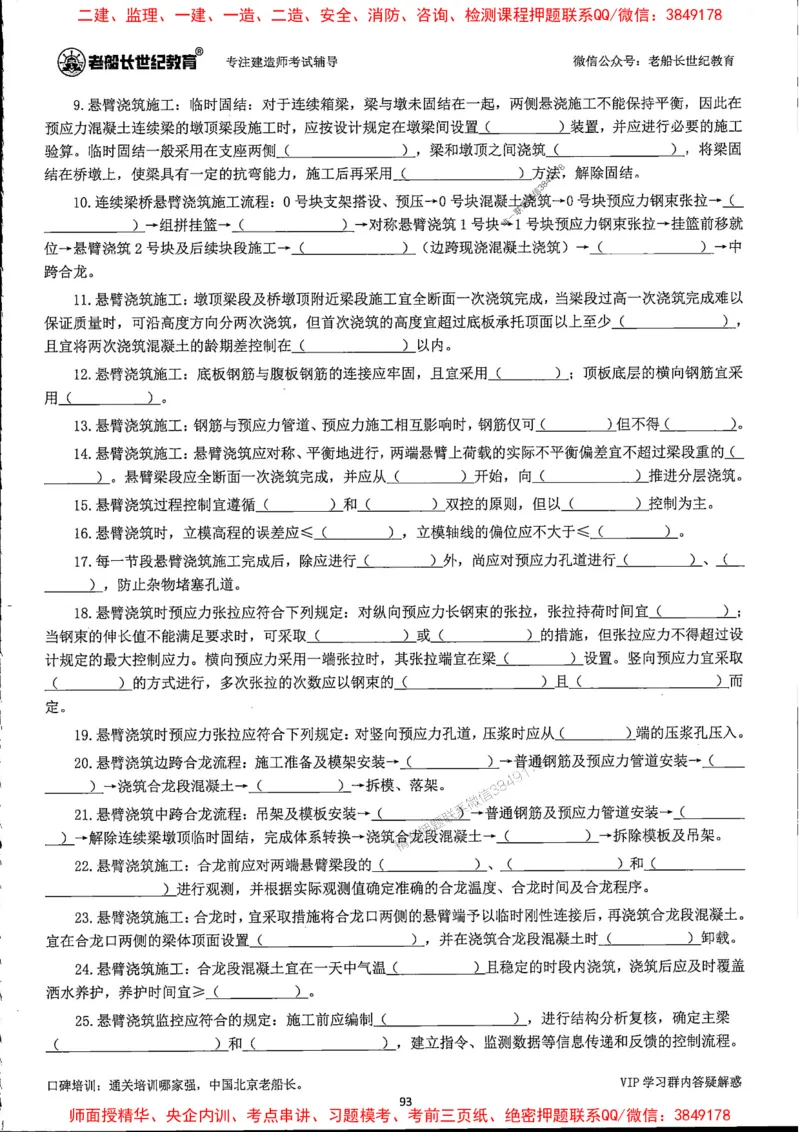 二建、监理、一建、一造、二造、安全、消防、咨询、检测课程押题联系QQ/微信：3849178
老船长世纪教育® 专注建造师考试辅导 微信公众号：老船长世纪教育
9.悬臂浇筑施工：临时固结：对于连续箱梁，梁与墩未固结在一起，两侧悬浇施工不能保持平衡，因此在
预应力混凝土连续梁的墩顶梁段施工时，应按设计规定在墩梁间设置（        ）装置，并应进行必要的施工
验算。临时固结一般采用在支座两侧（            ），梁和墩顶之间浇筑（            ），将梁固
结在桥墩上，使梁具有一定的抗弯能力，施工后再采用（            ）方法，解除固结。
10.连续梁桥悬臂浇筑施工流程：0号块支架搭设、预压→0号块混凝土浇筑→0号块预应力钢束张拉→（
          ）→组拼挂篮→（          ）→对称悬臂浇筑1号块→1号块预应力钢束张拉→挂篮前移就
位→悬臂浇筑2号块及后续块段施工→（          ）（边跨现浇混凝土浇筑）→（          ）→中
跨合龙。
11.悬臂浇筑施工：墩顶梁段及桥墩顶附近梁段施工宜全断面一次浇筑完成，当梁段过高一次浇筑完成难以
保证质量时，可沿高度方向分两次浇筑，但首次浇筑的高度宜超过底板承托顶面以上至少（          ），
且宜将两次浇筑混凝土的龄期差控制在（          ）以内。
12.悬臂浇筑施工：底板钢筋与腹板钢筋的连接应牢固，且宜采用（      ）；顶板底层的横向钢筋宜采
用（        ）。
13.悬臂浇筑施工：钢筋与预应力管道、预应力施工相互影响时，钢筋仅可（      ）但不得（      ）。
14.悬臂浇筑施工：悬臂浇筑应对称、平衡地进行，两端悬臂上荷载的实际不平衡偏差宜不超过梁段重的（
      ）。悬臂梁段应全断面一次浇筑完成，并应从（      ）开始，向（        ）推进分层浇筑。
15.悬臂浇筑过程控制宜遵循（      ）和（      ）双控的原则，但以（      ）控制为主。
16.悬臂浇筑时，立模高程的误差应≤（      ），立模轴线的偏位应不大于≤（      ）。
17.每一节段悬臂浇筑施工完成后，除应进行（      ）外，尚应对预应力孔道进行（      ）、（
      ），防止杂物堵塞孔道。
18.悬臂浇筑时预应力张拉应符合下列规定：对纵向预应力长钢束的张拉，张拉持荷时间宜（      ）；
当钢束的伸长值不能满足要求时，可采取（        ）或（        ）的措施，但张拉应力不得超过设
计规定的最大控制应力。横向预应力采用一端张拉时，其张拉端宜在梁（      ）设置。竖向预应力宜采取
（      ）的方式进行，多次张拉的次数应以钢束的（            ）且（            ）而
定。
19.悬臂浇筑时预应力张拉应符合下列规定：对竖向预应力孔道，压浆时应从（      ）端的压浆孔压入。
20.悬臂浇筑边跨合龙流程：施工准备及模架安装→（        ）→普通钢筋及预应力管道安装→（
      ）→浇筑合龙段混凝土→（        ）→拆模、落架。
21.悬臂浇筑中跨合龙流程：吊架及模板安装→（        ）→普通钢筋及预应力管道安装→（
  ）→解除连续梁墩顶临时固结，完成体系转换→浇筑合龙段混凝土→（        ）→拆除模板及吊架。
22.悬臂浇筑施工：合龙前应对两端悬臂梁段的（        ）、（          ）和（
            ）进行观测，并根据实际观测值确定准确的合龙温度、合龙时间及合龙程序。
23.悬臂浇筑施工：合龙时，宜采取措施将合龙口两侧的悬臂端予以临时刚性连接后，再浇筑合龙段混凝土。
宜在合龙口两侧的梁体顶面设置（              ），并在浇筑合龙段混凝土时（        ）卸载。
24.悬臂浇筑施工：合龙段混凝土宜在一天中气温（        ）且稳定的时段内浇筑，浇筑后应及时覆盖
洒水养护，养护时间宜≥（        ）。
25.悬臂浇筑监控应符合的规定：施工前应编制（            ），进行结构分析复核，确定主梁
（              ）和（            ），建立指令、监测数据等信息传递和反馈的控制流程。
口碑培训：通关培训哪家强，中国北京老船长。 VIP学习群内答疑解惑
93
师面授精华、央企内训、考点串讲、习题模考、考前三页纸、绝密押题联系QQ/微信：3849178